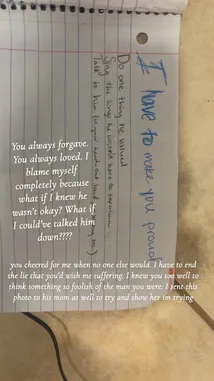 I have to make you proud
Do one thing he valued
Sing the songs he wasn't here to
Talk to him
You always forgave.
You always loved. I
blame myself
completely because
what if I knew he
wasn't okay? What if
I could've talked him
down????
you cheered for me when no one else would. I have to end
the lie that you'd wish me suffering. I knew you too well to
think something so foolish of the man you were. I sent this
photo to his mom as well to try and show her im trying